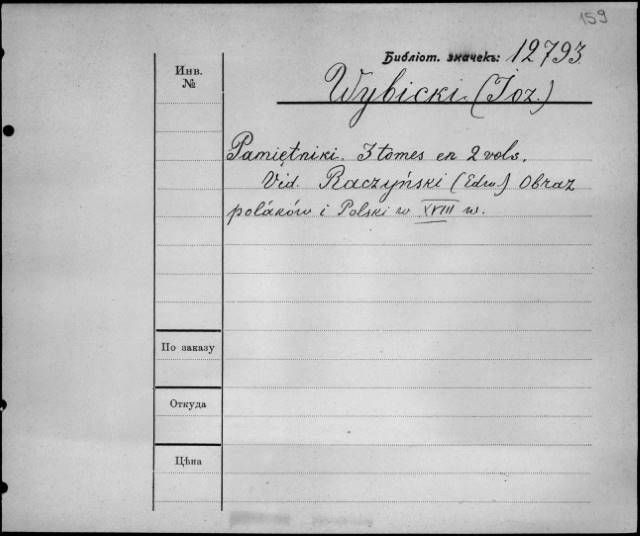 159
Библіот. значекъ: 12793.
Инв.
№
Wybicki (Joz.)
Pamiętniki. 3 tomes en 2 vols.
Vid. Raczyński (Edw.) Obraz
polaków i Polski w XVIII w.
По заказу
Откуда
Цѣна